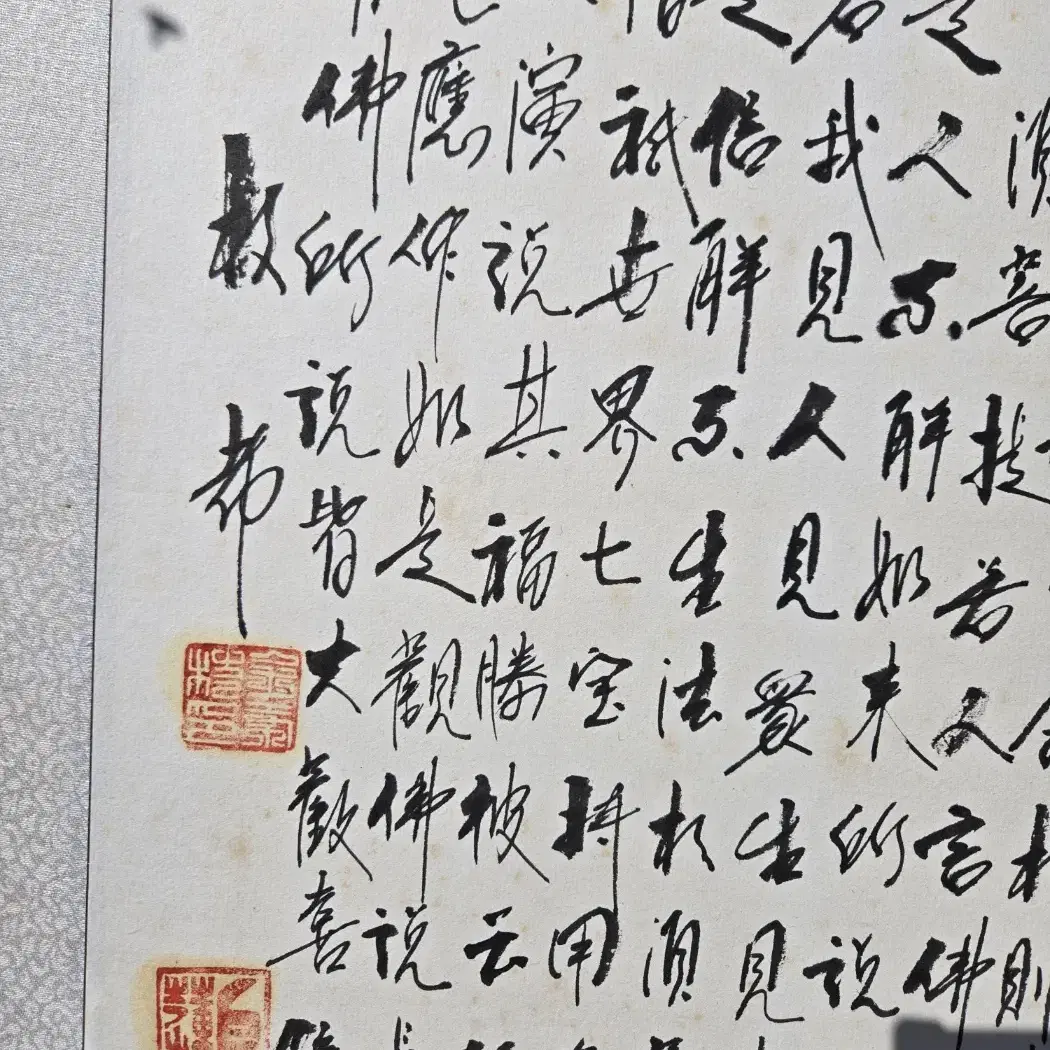 相則
須菩提若人言佛
是人不解如來所說
名我見人見眾生見
是信解不生法相須
祇世界七宝持用
演說其福勝彼云
應作如是觀佛說
佛所說皆大歡喜